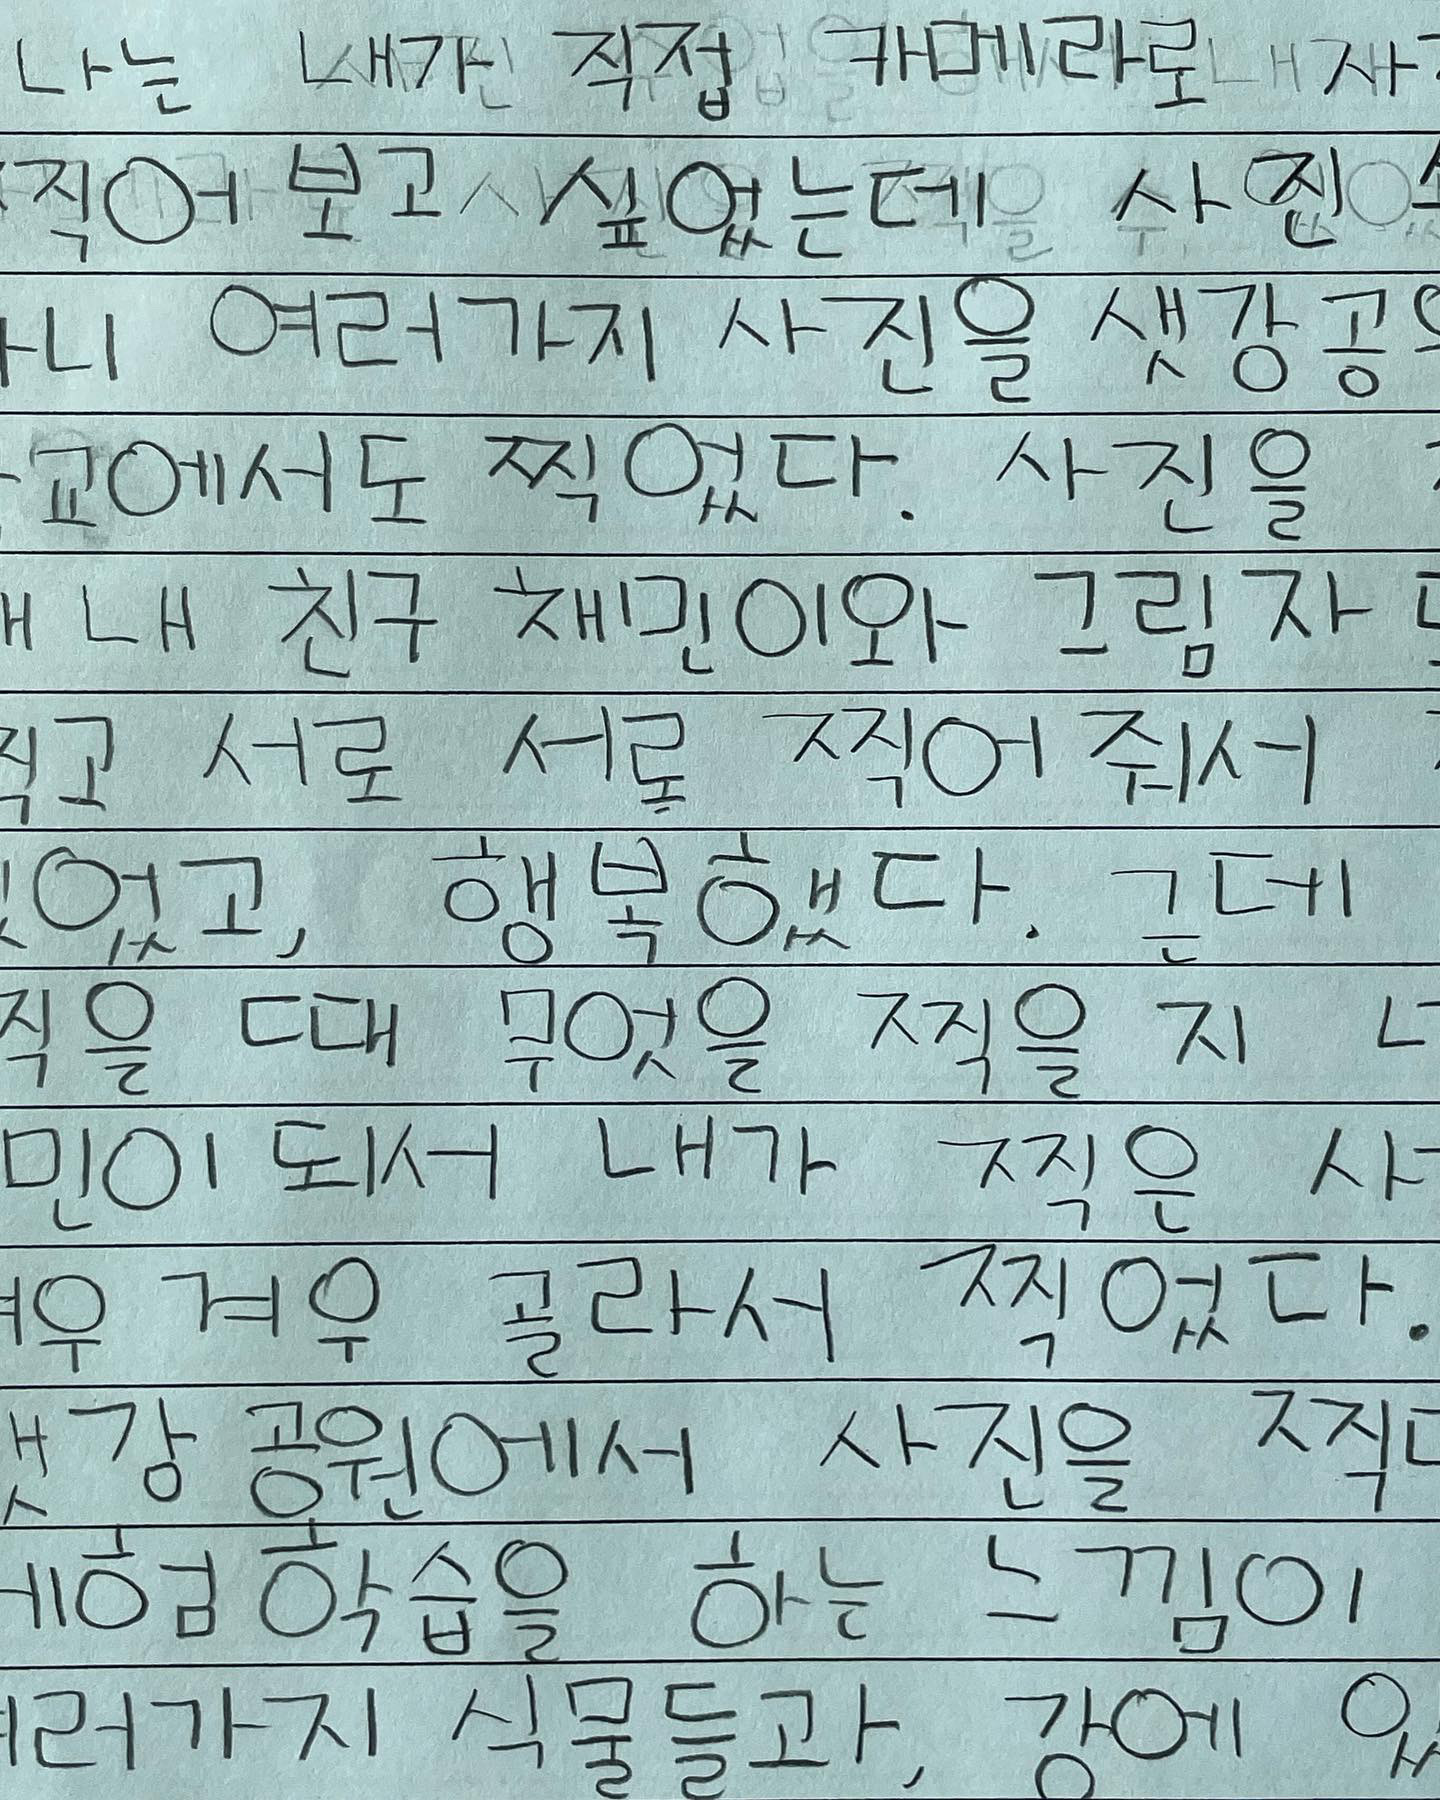 나는 내가 직접 카메라로 내
찍어 보고 싶었는데 사진
여러가지 사진을 샛강공
교에서도 찍었다. 사진을
내 친구 채민이와 그림자
찍고 서로 서로 찍어 줘서
었고, 행복했다. 근데
찍을 때 무엇을 찍을 지
민이 되서 내가 찍은
겨우 골라서 찍었다.
강 공원에서 사진을
체험 학습을 하는 느낌이
여러가지 식물들과, 강에